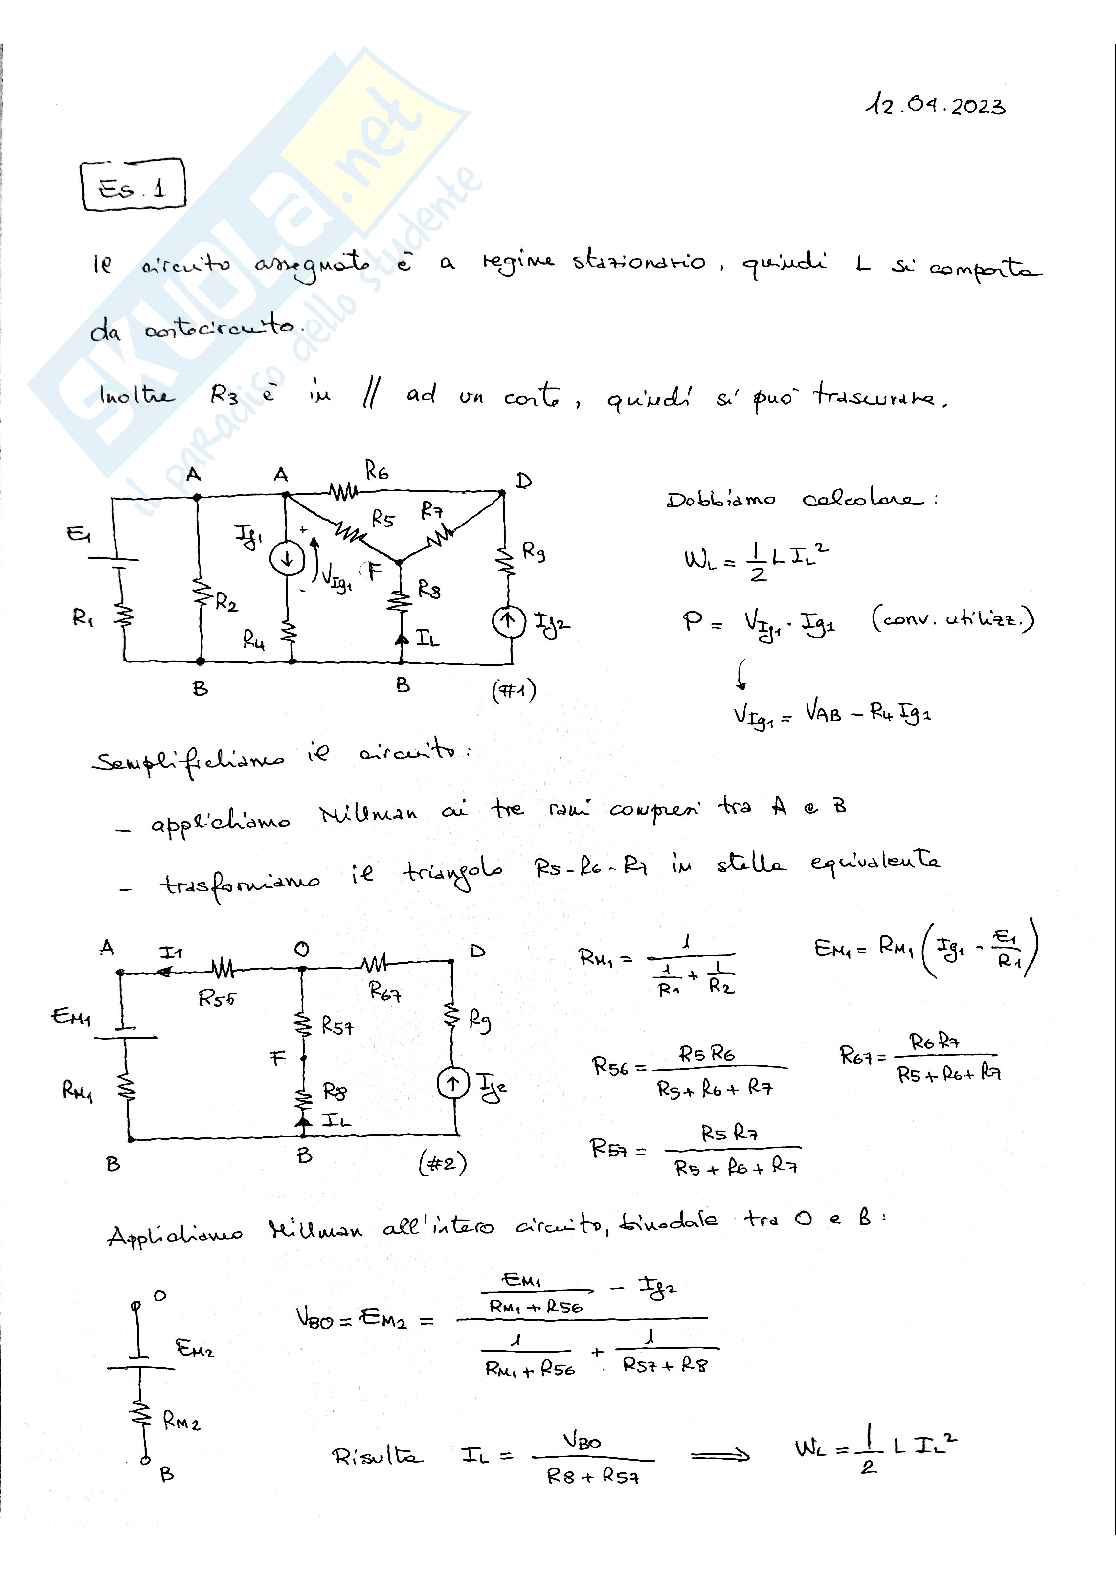 SKUOLA.net
il paradiso dello studente
12.04.2023
Es. 1
Il circuito assegnato è a regime stazionario, quindi L si comporta
da cortocircuito.
Inoltre R3 è in // ad un corto, quindi si può trascurare.
A A R6 D
E1 Ig1 + R5 R7 R9
VIg1 F
R1 R2 - R8 Ig2
R4 IL
B B (#1)
Dobbiamo calcolare:
WL = 1/2 L IL²
P = VIg1 · Ig1 (conv. utilizz.)
↓
VIg1 = VAB - R4 Ig1
Semplifichiamo il circuito:
- applichiamo Millman ai tre rami compresi tra A e B
- trasformiamo il triangolo R5-R6-R7 in stella equivalente
A I1 O D
R56 R67
EM1 R57 R9
F
RM1 R8 Ig2
IL
B B (#2)
RM1 = 1 / (1/R1 + 1/R2) EM1 = RM1 (Ig1 - E1/R1)
R56 = R5 R6 / (R5 + R6 + R7) R67 = R6 R7 / (R5 + R6 + R7)
R57 = R5 R7 / (R5 + R6 + R7)
Applichiamo Millman all'intero circuito, binodale tra O e B:
O
EM2
RM2
B
VBO = EM2 = (EM1 / (RM1 + R56) - Ig2) / (1 / (RM1 + R56) + 1 / (R57 + R8))
Risulta IL = VBO / (R8 + R57) ⟹ WL = 1/2 L IL²